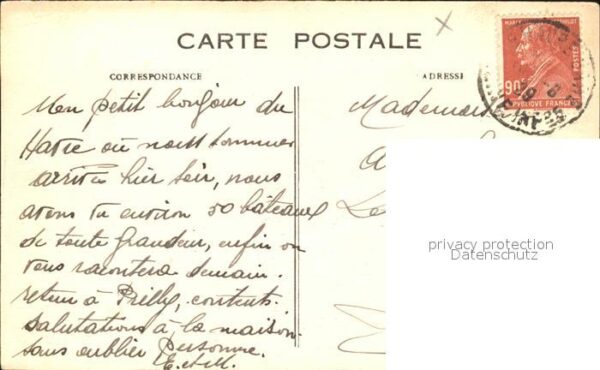 CARTE POSTALE
CORRESPONDANCE
ADRESSE
Mon petit bonjour du
Havre où nous sommes
arrivés hier soir, nous
avons vu environ 50 bâteaux
de toute grandeur, enfin on
vous racontera demain.
retour à Prilly, contents.
salutations à la maison
sans oublier Personne.
E. et M.
Mademoi
A
Le
90c
RÉPUBLIQUE FRANÇAISE
POSTES
privacy protection
Datenschutz